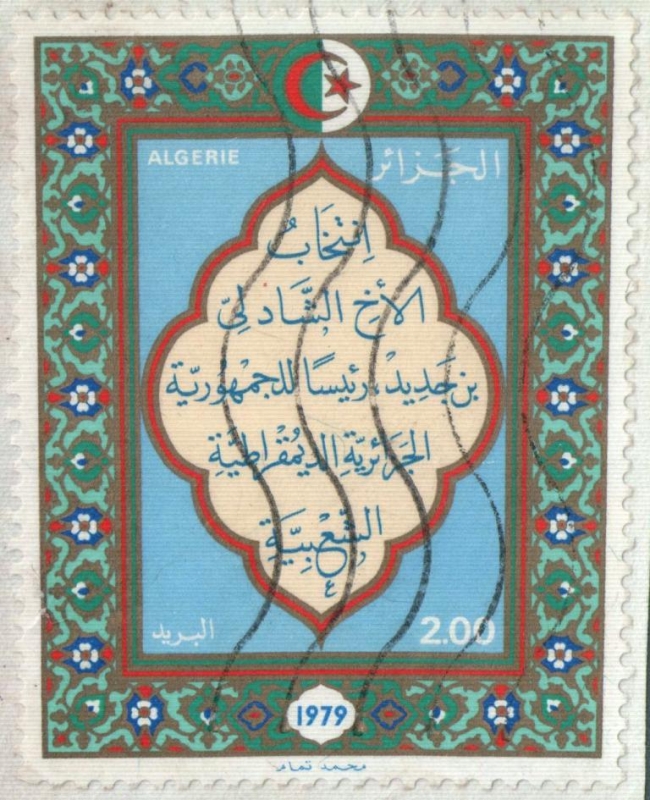 ALGERIE الجزائر
إنتخاب
الأخ الشّاذليّ
بن جَديدْ، رئيسًا للجمْهُوريّة
الجَزائريّةِ الديمُقْراطيّة
الشّعْبيَّةِ
البريد 2.00
1979
محمد تمام